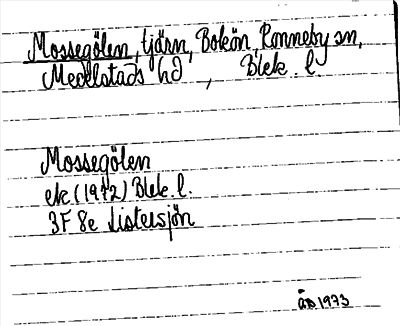 Mossegölen, tjärn, Bokön, Ronneby sn,
Medelstads hd, Blek. l
Mossegölen
ek (1972) Blek. l.
3F 8e Listersjön
ÅD 1973